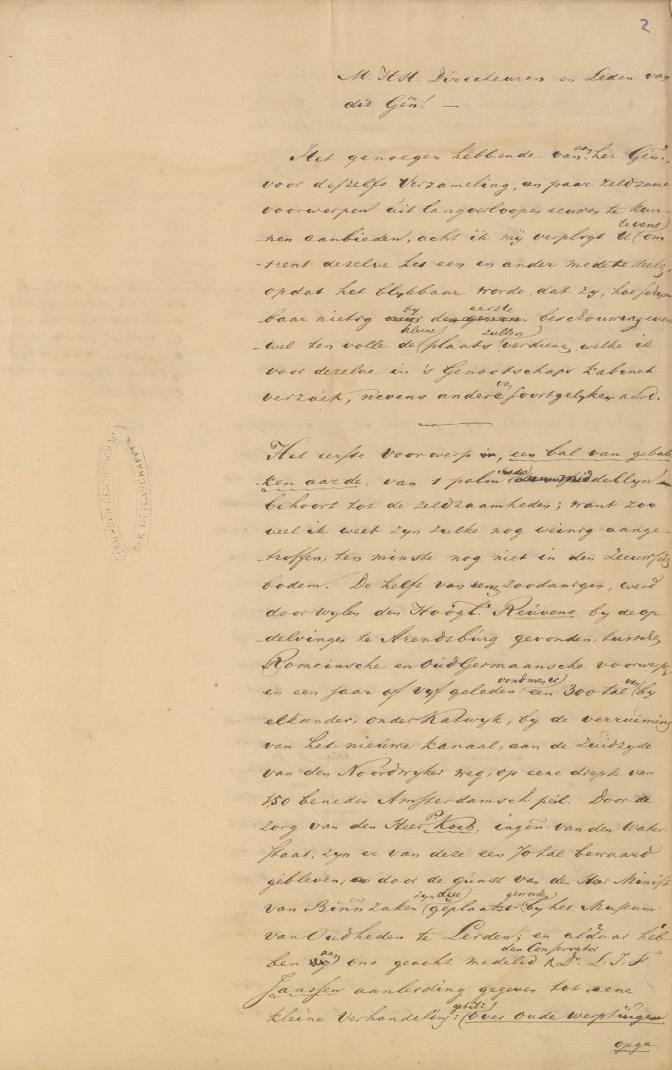 2
M. H.H. Directeuren en Leden van
dit Gen! —
Het genoegen hebbende van aan het Gen.,
voor deszelfs Verzameling, en paar zeldzame
voorwerpen uit langverloopen eeuwen te kun-
nen aanbieden, acht ik mij verpligt U (tevens) om-
trent dezelve het een en ander mede te deelen,
opdat het blykbaar worde dat zy, hoe schyn-
baar nietig by de eerste beschouwing even-
wel ten volle de kleine plaats zullen verdienen, welke ik
voor dezelve in 's Genootschaps kabinet
verzoek, nevens andere van soortgelyken aard.
Het eerste voorwerp, een bal van gebak-
ken aarde, van 1 palm middellyn
behoort tot de zeldzaamheden; want zoo
veel ik weet zyn zulke nog weinig aange-
troffen, ten minste nog niet in den Zeeuwschen
bodem. De helft van eenen zoodanigen, werd
door wylen den Hoogl. Reuvens by de op-
delvingen te Arendsburg gevonden, tusschen
Romeinsche en Oud Germaansche voorwerpen
en een jaar of vyf geleden vond men er een 300 tal van by
elkander, onder Katwyk, by de verruiming
van het nieuwe kanaal, aan de Zuidzyde
van den Noordwyker weg, op eene diepte van
1,50 beneden Amsterdamsch peil. Door de
zorg van den Heer P. Kock, ingen. van den Water-
staat, zyn er van deze een 70 tal bewaard
gebleven; door de gunst van den Minist.
van Binn. zaken zyn deze geplaatst geworden by het Museum
van Oudheden te Leiden; en aldaar heb-
ben aan ons geacht medelid den Conservator Dr. L. J. F.
Janssen aanleiding gegeven tot eene
kleine Verhandeling: getit: (over oude werptuigen
opge